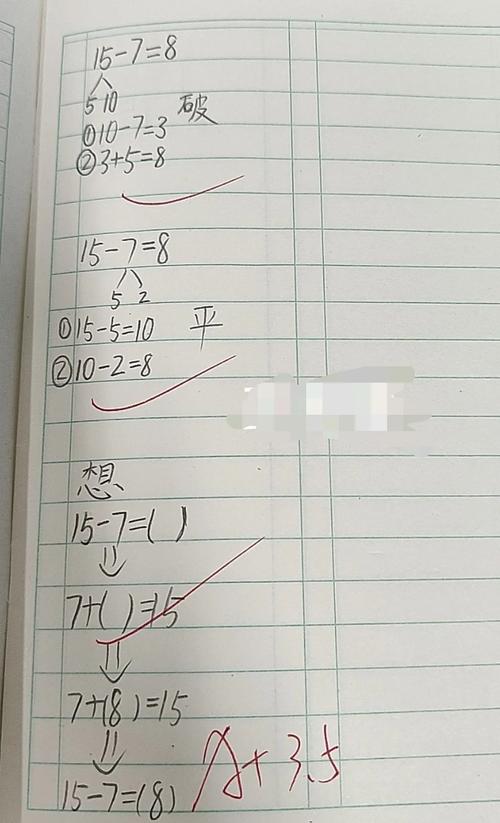 15-7=8
5 10
①10-7=3 破
②3+5=8
15-7=8
5 2
①15-5=10 平
②10-2=8
想
15-7=( )
7+( )=15
7+(8)=15
15-7=(8)
A+ 3.5